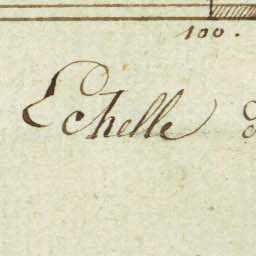 100.
Echelle